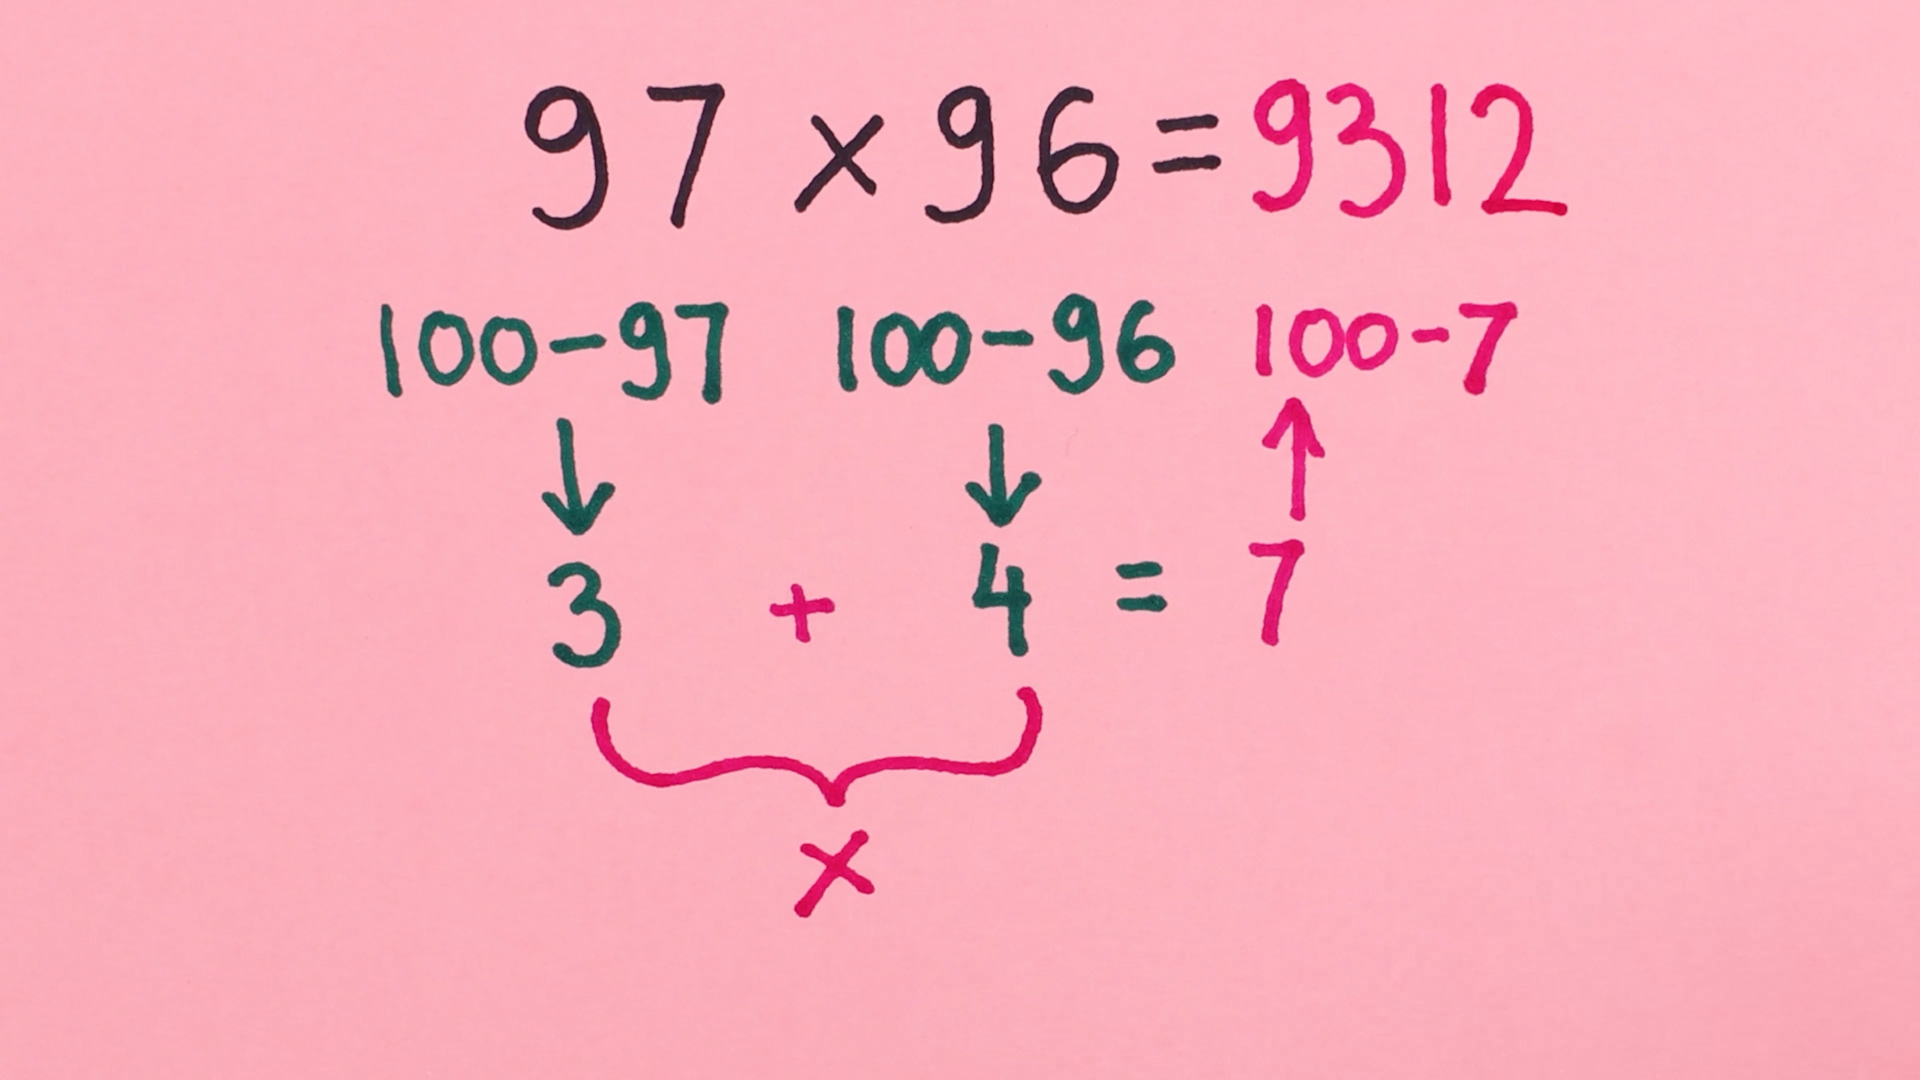 97 × 96 = 9312
100-97 100-96 100-7
↓ ↓ ↑
3 + 4 = 7
×